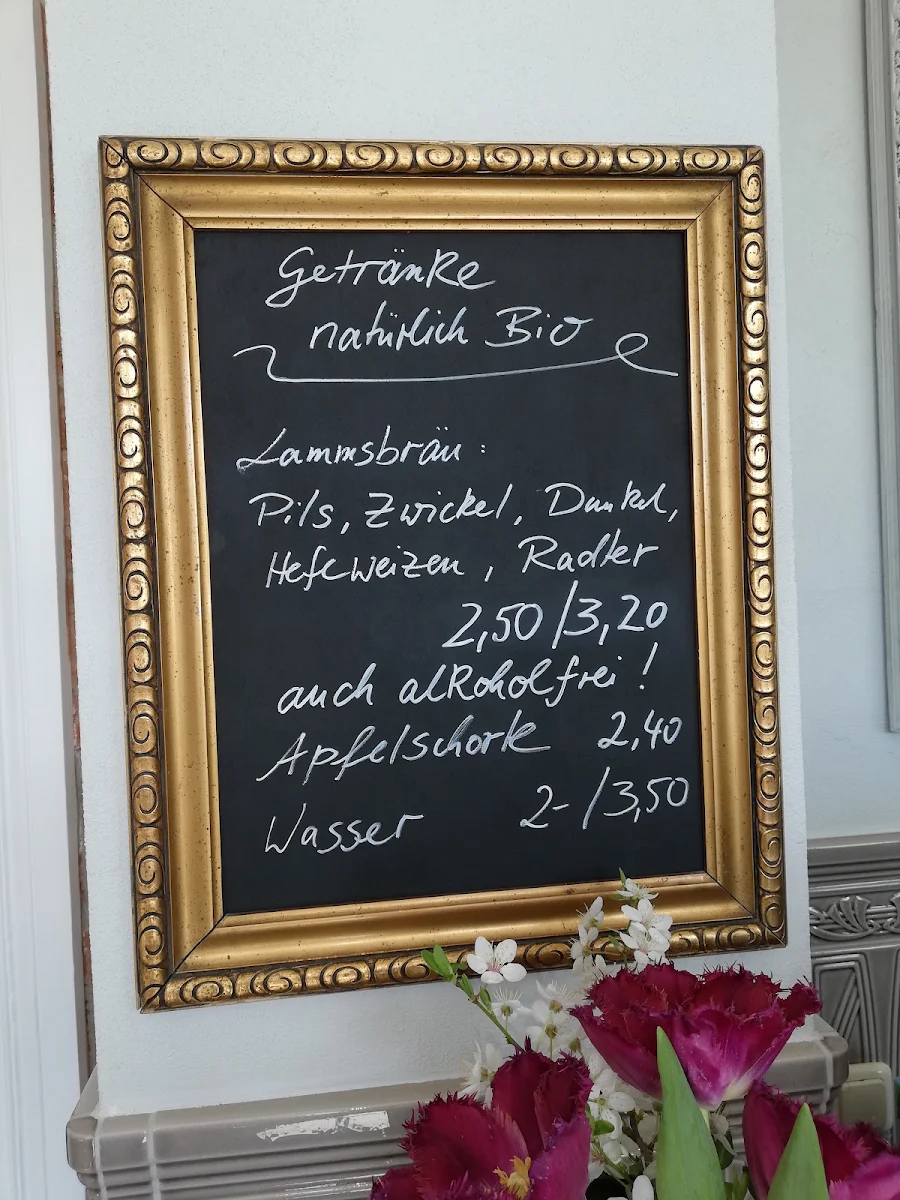 Getränke
natürlich Bio
Lammsbräu:
Pils, Zwickel, Dunkel,
Hefeweizen, Radler
2,50/3,20
auch alkoholfrei!
Apfelschorle 2,40
Wasser 2-/3,50